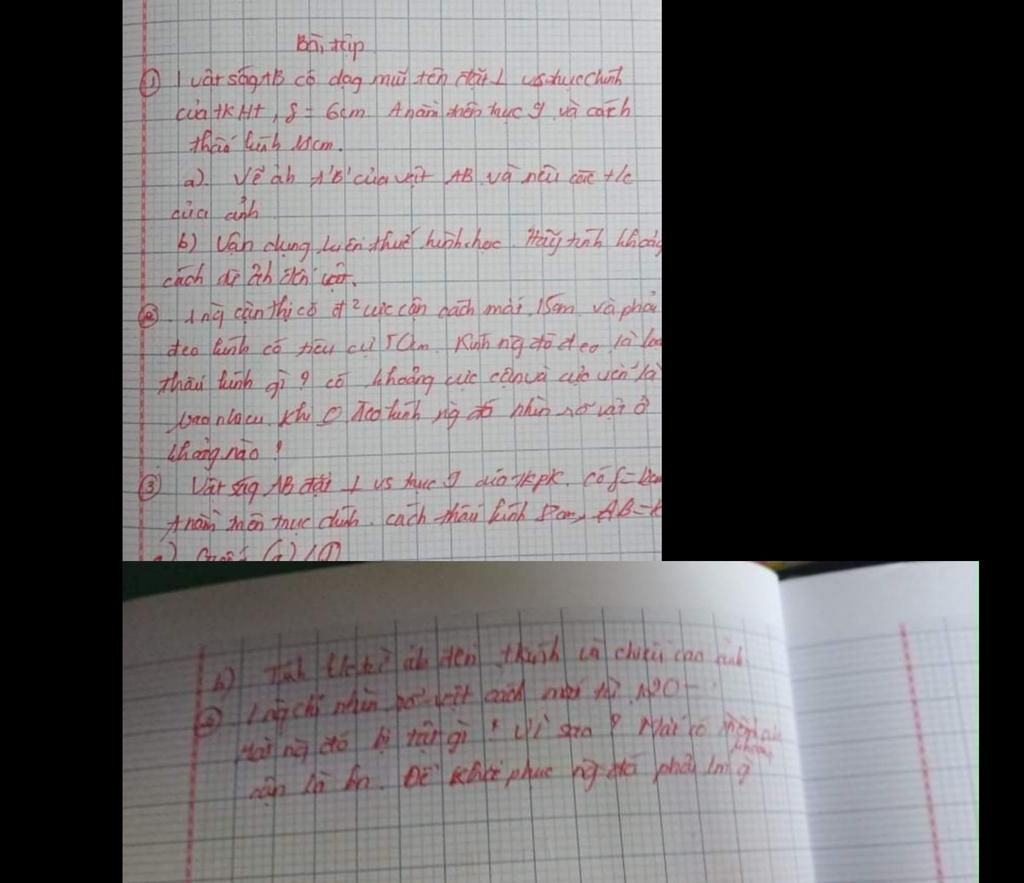 Bài tập
① 1 vật sáng AB có dạng mũi tên đặt ⊥ vs trục chính
của tk Ht, f = 6cm. A nằm trên trục g và cách
thấu kính
a). Vẽ ảh A'B' của vật AB và nêu các t/c
của ảnh
b) Vận dụng kiến thức hình học. Hãy tính khoảg
cách từ ảh đến vật.
②. 1 ng cận thị có đ² cực cận cách mắt 15cm và phải
đeo kính có tiêu cự 50cm. Kính ng đó đeo là loại
thấu kính gì? có khoảng cực cận và cực viễn là
bao nhiêu. Khi O đeo kính ng đó nhìn rõ vật ở
khoảng nào?
③ Vật ság AB đặt ⊥ vs trục g của tkpk. có f =
A nằm trên trục chính. cách thấu kính AB =
a)
b) Tính k/c từ ảh đến t.kính và chiều cao ảnh
1 ng chỉ nhìn rõ vật cách mắt từ
Mắt ng đó bị tật gì? Vì sao? Mắt có khoảng
cận là bn. Để khắc phục ng đó phải lm g